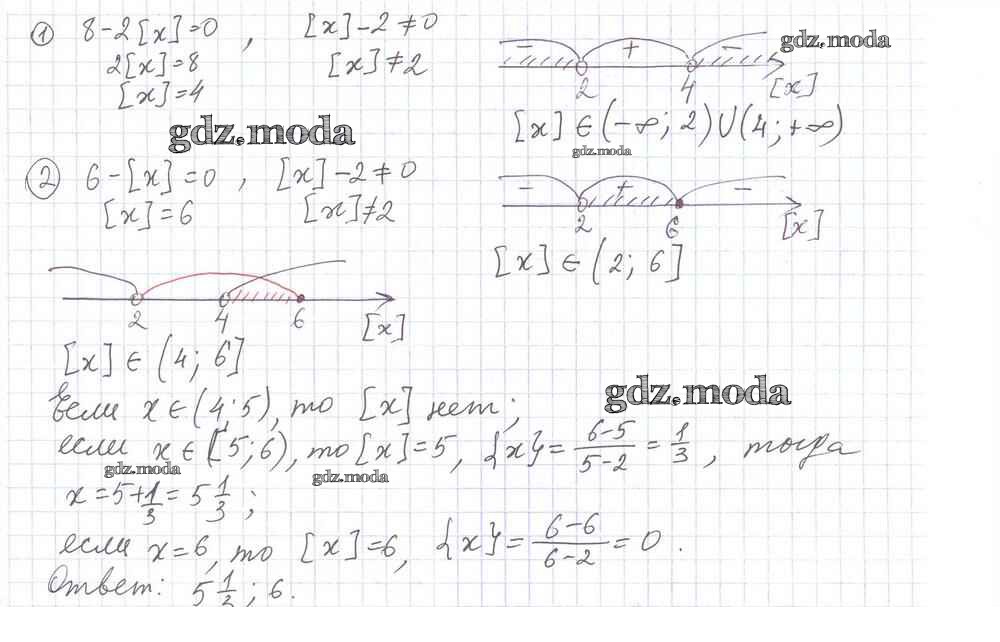 ① 8-2[x]=0 , [x]-2≠0
2[x]=8 [x]≠2
[x]=4
- + - gdz.moda
2 4 [x]
[x] ∈ (-∞; 2) ∪ (4; +∞)
gdz.moda
gdz.moda
② 6-[x]=0 , [x]-2≠0
[x]=6 [x]≠2
- + -
2 6 [x]
[x] ∈ (2; 6]
2 4 6 [x]
[x] ∈ (4; 6]
gdz.moda
Если x ∈ (4;5), то [x] нет;
если x ∈ [5;6), то [x]=5, {x}= (6-5)/(5-2) = 1/3, тогда
gdz.moda gdz.moda
x=5+1/3=5 1/3;
если x=6, то [x]=6, {x}= (6-6)/(6-2) = 0.
Ответ: 5 1/3; 6.